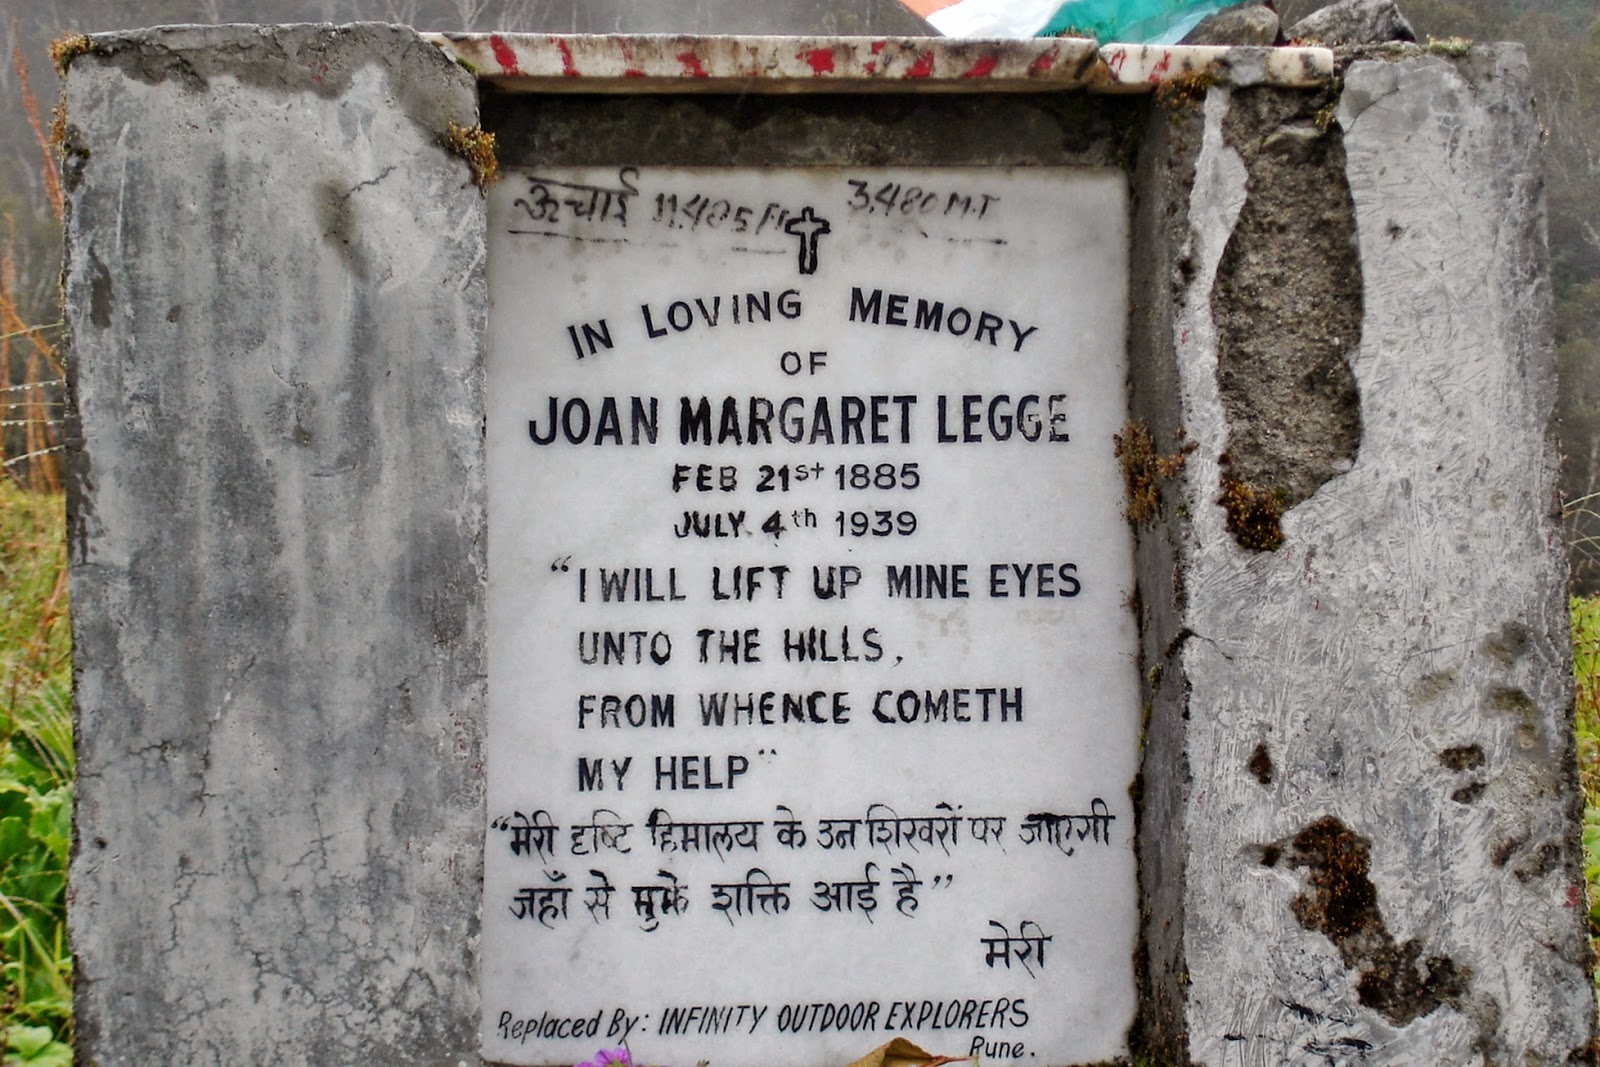 ऊँचाई 11.485 Ft 3.480 M.T
IN LOVING MEMORY
OF
JOAN MARGARET LEGGE
FEB 21st 1885
JULY 4th 1939
“I WILL LIFT UP MINE EYES
UNTO THE HILLS,
FROM WHENCE COMETH
MY HELP”
“मेरी दृष्टि हिमालय के उन शिखरों पर जाएगी
जहाँ से मुझे शक्ति आई है”
मेरी
Replaced By: INFINITY OUTDOOR EXPLORERS
Pune.